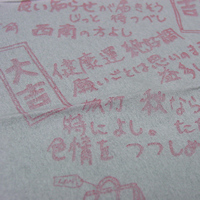 知らせが届きそう
じっと待つべし
西南の方よし
大吉
健康運 絶好調
願いごとは思いのまま
旅行 秋なら
特によし。ただ
色情をつつしめ